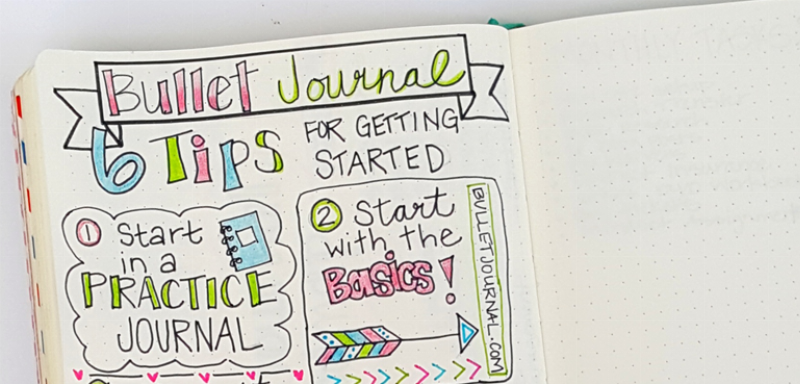 Bullet Journal
6 Tips FOR GETTING
STARTED
1 Start
in a
PRACTICE
JOURNAL
2 Start
with the
Basics!
BULLETJOURNAL.COM